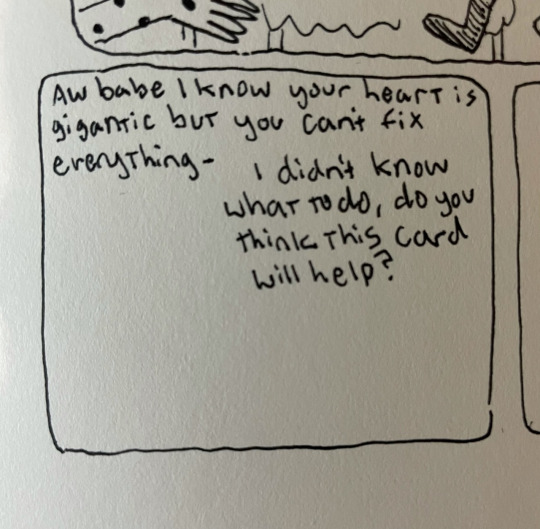 Aw babe I know your heart is
gigantic but you can't fix
everything-
I didn't know
what to do, do you
think this card
will help?